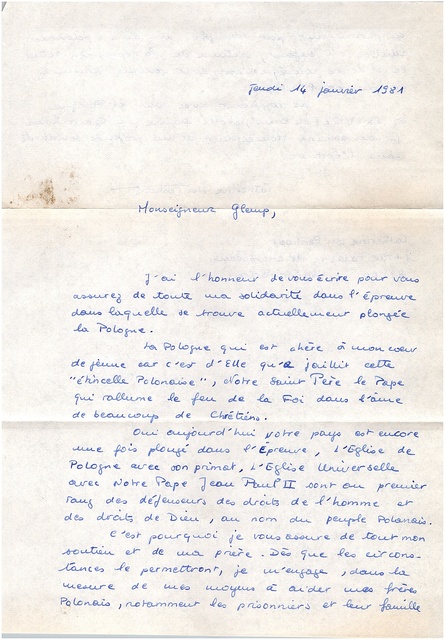 Jeudi 14 janvier 1981
Monseigneur Glemp,
J'ai l'honneur de vous écrire pour vous
assurez de toute ma solidarité dans l'épreuve
dans laquelle se trouve actuellement plongée
la Pologne.
La Pologne qui est chère à mon cœur
de jeune car c'est d'Elle qu'a jaillit cette
"étincelle Polonaise", Notre Saint Père le Pape
qui rallume le feu de la Foi dans l'âme
de beaucoup de Chrétiens.
Oui aujourd'hui votre pays est encore
une fois plongé dans l'Épreuve, L'Eglise de
Pologne avec son primat, L'Eglise Universelle
avec Notre Pape Jean Paul II sont au premier
rang des défenseurs des droits de l'homme et
des droits de Dieu, au nom du peuple Polonais.
C'est pourquoi je vous assure de tout mon
soutien et de ma prière. Dès que les circons-
tances le permettront, je m'engage, dans la
mesure de mes moyens à aider mes frères
Polonais, notamment les prisonniers et leur famille